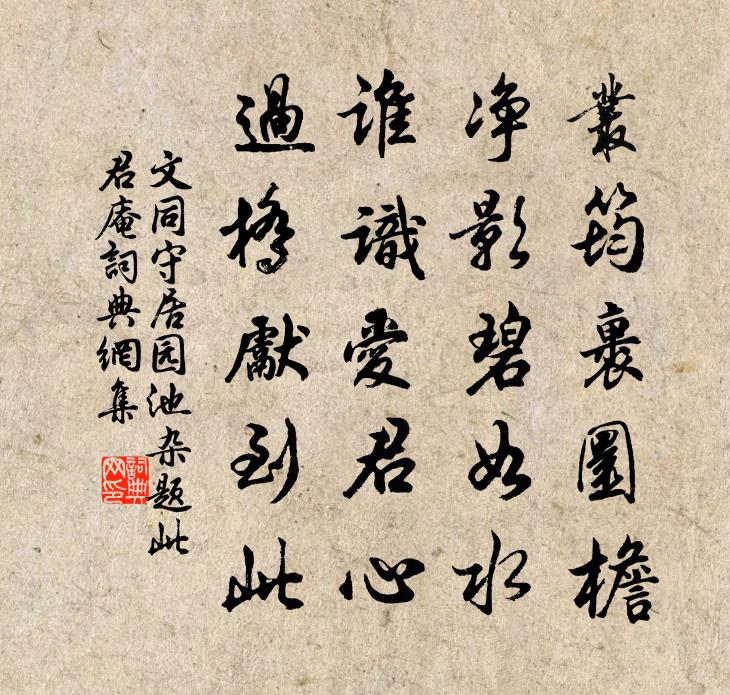 叢筠裹圜檐
净影碧如水
誰識愛君心
過橋獻到此
文同守居园池杂题此
君庵詞典網集
詞典网印